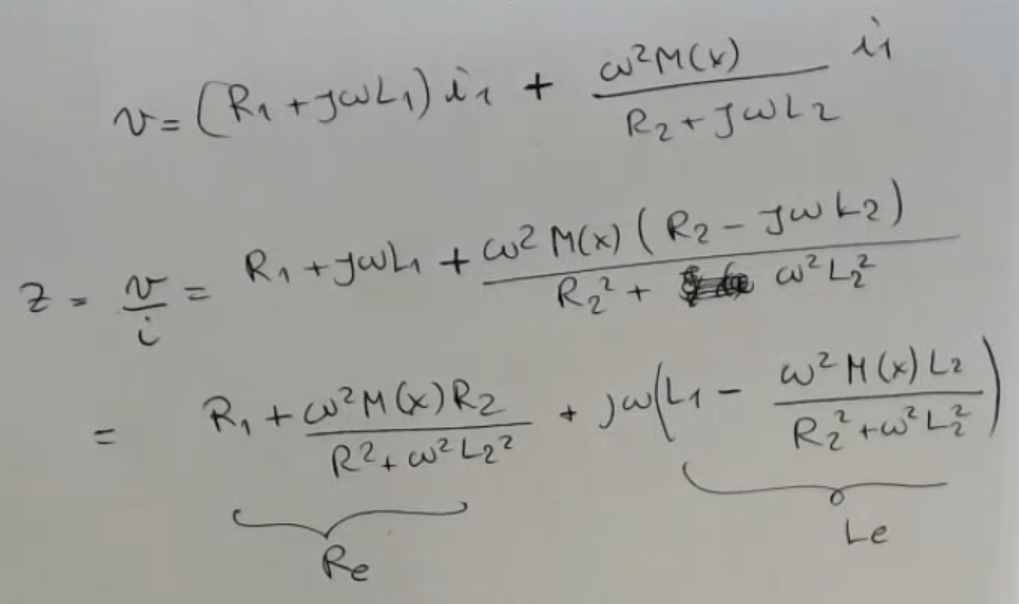 v = (R₁ + jωL₁) i₁ + ω²M(x) / (R₂ + jωL₂) i₁
Z = v/i = R₁ + jωL₁ + ω²M(x)(R₂ - jωL₂) / (R₂² + ω²L₂²)
= R₁ + ω²M(x)R₂ / (R² + ω²L₂²) + jω(L₁ - ω²M(x)L₂ / (R₂² + ω²L₂²))
Re Le